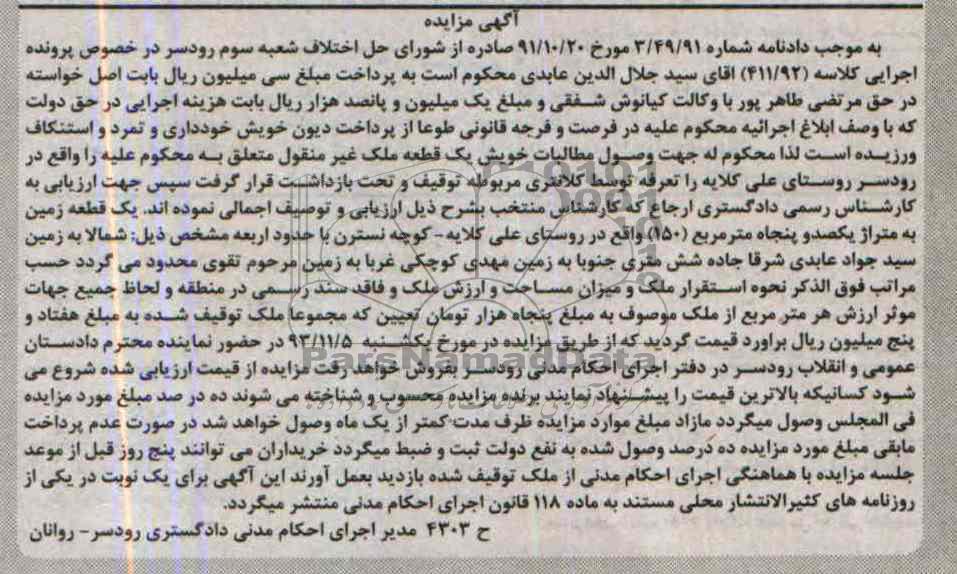 آگهی مزایده
به موجب دادنامه شماره ۳/۴۹/۹۱ مورخ ۹۱/۱۰/۲۰ صادره از شورای حل اختلاف شعبه سوم رودسر در خصوص پرونده
اجرایی کلاسه (۴۱۱/۹۲) اقای سید جلال الدین عابدی محکوم است به پرداخت مبلغ سی میلیون ریال بابت اصل خواسته
در حق مرتضی طاهر پور با وکالت کیانوش شفقی و مبلغ یک میلیون و پانصد هزار ریال بابت هزینه اجرایی در حق دولت
که با وصف ابلاغ اجرائیه محکوم علیه در فرصت و فرجه قانونی طوعا از پرداخت دیون خویش خودداری و تمرد و استنکاف
ورزیده است لذا محکوم له جهت وصول مطالبات خویش یک قطعه ملک غیر منقول متعلق به محکوم علیه را واقع در
رودسر روستای علی کلایه را تعرفه توسط کلانتری مربوطه توقیف و تحت بازداشت قرار گرفت سپس جهت ارزیابی به
کارشناس رسمی دادگستری ارجاع که کارشناس منتخب بشرح ذیل ارزیابی و توصیف اجمالی نموده اند. یک قطعه زمین
به متراژ یکصدو پنجاه مترمربع (۱۵۰) واقع در روستای علی کلایه- کوچه نسترن با حدود اربعه مشخص ذیل: شمالا به زمین
سید جواد عابدی شرقا جاده شش متری جنوبا به زمین مهدی کوچکی غربا به زمین مرحوم تقوی محدود می گردد حسب
مراتب فوق الذکر نحوه استقرار ملک و میزان مساحت و ارزش ملک و فاقد سند رسمی در منطقه و لحاظ جمیع جهات
موثر ارزش هر متر مربع از ملک موصوف به مبلغ پنجاه هزار تومان تعیین که مجموعا ملک توقیف شده به مبلغ هفتاد و
پنج میلیون ریال براورد قیمت گردید که از طریق مزایده در مورخ یکشنبه ۹۳/۱۱/۵ در حضور نماینده محترم دادستان
عمومی و انقلاب رودسر در دفتر اجرای احکام مدنی رودسر بفروش خواهد رفت مزایده از قیمت ارزیابی شده شروع می
شود کسانیکه بالاترین قیمت را پیشنهاد نمایند برنده مزایده محسوب و شناخته می شوند ده در صد مبلغ مورد مزایده
فی المجلس وصول میگردد مازاد مبلغ موارد مزایده ظرف مدت کمتر از یک ماه وصول خواهد شد در صورت عدم پرداخت
مابقی مبلغ مورد مزایده ده درصد وصول شده به نفع دولت ثبت و ضبط میگردد خریداران می توانند پنج روز قبل از موعد
جلسه مزایده با هماهنگی اجرای احکام مدنی از ملک توقیف شده بازدید بعمل آورند این آگهی برای یک نوبت در یکی از
روزنامه های کثیرالانتشار محلی مستند به ماده ۱۱۸ قانون اجرای احکام مدنی منتشر میگردد.
ح ۴۳۰۳ مدیر اجرای احکام مدنی دادگستری رودسر- روانان
ParsNamadData